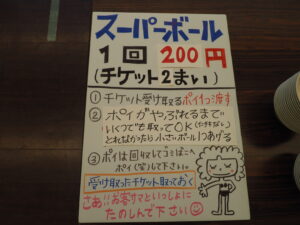 スーパーボール
1回 200円
(チケット2まい)
① チケット受け取るポイ1つ渡す
② ポイがやぶれるまで
いくつでも取ってOK
とれなかったら小さいボール1つあげる
③ ポイは回収してゴミばこへ
ポイ(笑)して下さい。
受け取ったチケット取っておく
さあ!!お客サマといっしょに
たのしんで下さい